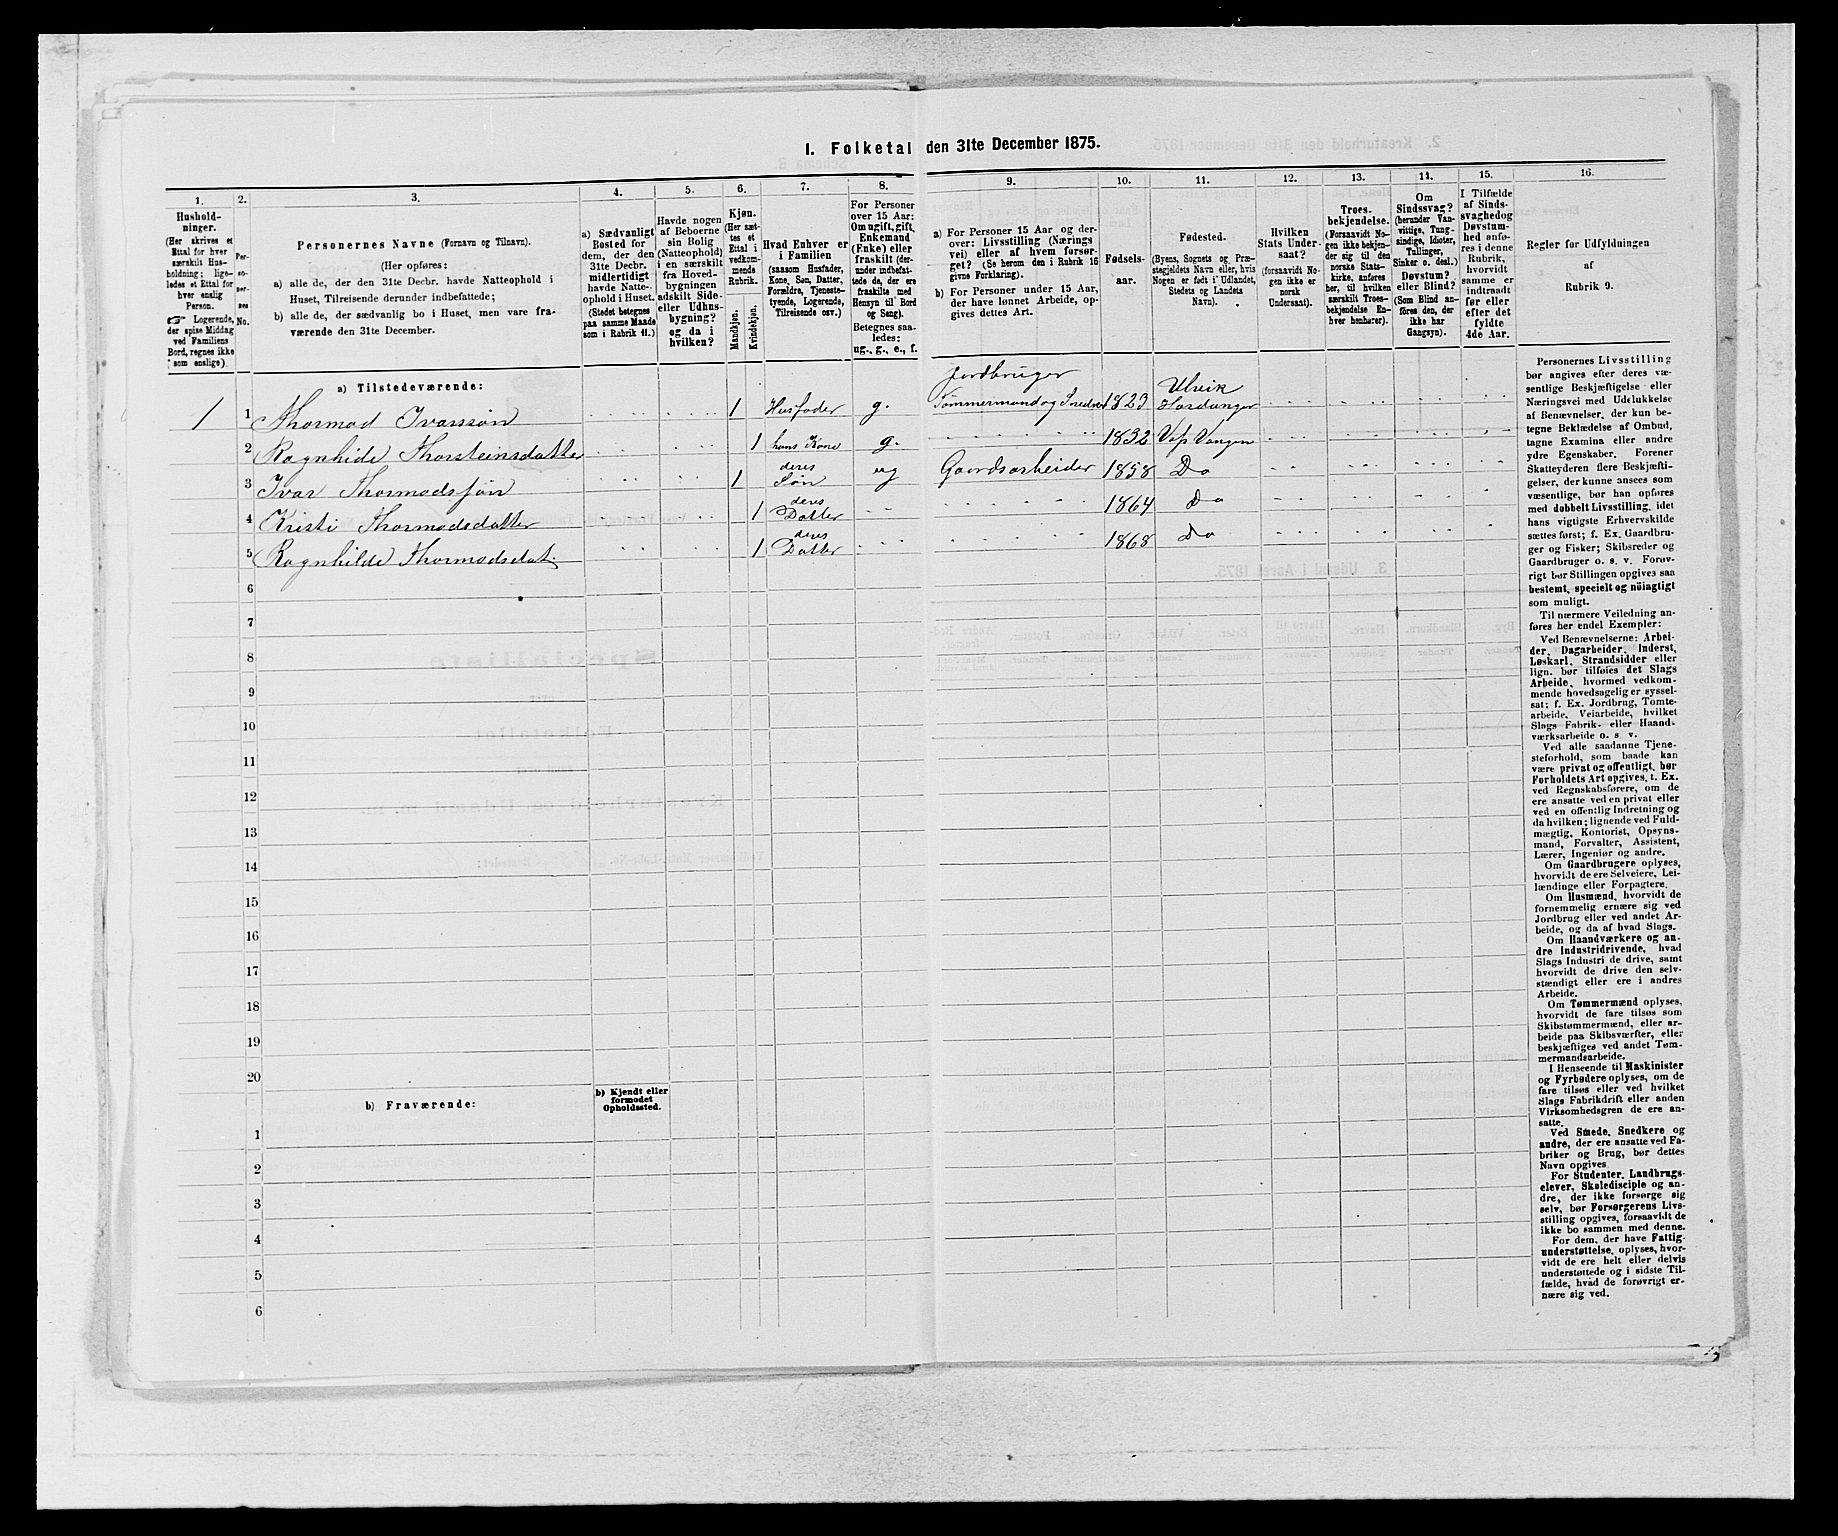 1. Folketal den 31te December 1875.
1.
Hushold-
ninger.
(Her skrives et
Ettal for hver
særskilt Hus-
holdning; lige-
ledes et Ettal for
hver enslig
Person.
☞ Logerende,
der spise Middag
ved Familiens
Bord, regnes ikke
som enslige).
2.
Per-
so-
ner-
nes
No.
3.
Personernes Navne (Fornavn og Tilnavn).
(Her opføres:
a) alle de, der den 31te Decbr. havde Natteophold i
Huset, Tilreisende derunder indbefattede;
b) alle de, der sædvanlig bo i Huset, men vare fra-
værende den 31te December.
4.
a) Sædvanligt
Bosted for
dem, der den
31te Decbr.
midlertidigt
havde Natte-
ophold i Huset.
(Stedet betegnes
paa samme Maade
som i Rubrik 11.)
5.
Havde nogen
af Beboerne
sin Bolig
(Natteophold)
i en særskilt
fra Hoved-
bygningen
adskilt Side-
eller Udhus-
bygning?
og da i
hvilken?
6.
Kjøn.
(Her sæt-
tes et
Ettal i
vedkom-
mende
Rubrik.
Mandkjøn.
Kvindekjøn.
7.
Hvad Enhver er
i Familien
(saasom Husfader,
Kone, Søn, Datter,
Forældre, Tjeneste-
tyende, Logerende,
Tilreisende osv.)
8.
For Personer
over 15 Aar:
Om ugift, gift,
Enkemand
(Enke) eller
fraskilt (der-
under indbefat-
tede de, der ere
fraskilte med
Hensyn til Bord
og Seng).
Betegnes saa-
ledes:
ug., g., e., f.
9.
a) For Personer 15 Aar og der-
over: Livsstilling (Nærings
vei) eller af hvem forsør-
get? (Se herom den i Rubrik 16
givne Forklaring).
b) For Personer under 15 Aar,
der have lønnet Arbeide, op-
gives dettes Art.
10.
Fødsels-
aar.
11.
Fødested.
(Byens, Sognets og Præ-
stegjeldets Navn eller, hvis
Nogen er født i Udlandet,
Stedets og Landets
Navn).
12.
Hvilken
Stats Under-
saat?
(forsaavidt No-
gen ikke er
norsk
Undersaat).
13.
Troes-
bekjendelse.
(Forsaavidt No-
gen ikke bekjen-
der sig til den
norske Stats-
kirke, anføres
her, til hvilken
særskilt Troes-
bekjendelse En-
hver henhører).
14.
Om
Sindssvag?
(herunder Van-
vittige, Tung-
sindige, Idioter,
Tullinger,
Sinker o. desl.)
Døvstum?
eller Blind?
(Som Blind an-
føres den, der
ikke har
Gangsyn).
15.
I Tilfælde
af Sinds-
svaghed og
Døvstum-
hed anfø-
res i denne
Rubrik,
hvorvidt
samme er
indtraadt
før eller
efter det
fyldte
4de Aar.
16.
Regler for Udfyldningen
af
Rubrik 9.
a) Tilstedeværende:
1 1 Thormod Ivarssøn 1 Husfader g. Jordbruger Tømmermand og Snedker 1823 Ulvik Hardanger
2 Ragnhide Thorsteinsdatter 1 hans Kone g. 1832 Vangen
3 Ivar Thormodssøn 1 deres Søn ug Gaardsarbeider 1858 Do
4 Kristi Thormodsdatter 1 deres Datter 1864 Do
5 Ragnhilde Thormodsdat. 1 deres Datter 1868 Do
6
7
8
9
10
11
12
13
14
15
16
17
18
19
20
b) Fraværende:
b) Kjendt eller
formodet
Opholdssted.
1
2
3
4
5
6
Personernes Livsstilling
bør angives efter deres væ-
sentlige Beskjæftigelse eller
Næringsvei med Udelukkelse
af Benævnelser, der kun be-
tegne Beklædelse af Ombud,
tagne Examina eller andre
ydre Egenskaber. Forener
Skatteyderen flere Beskjæfti-
gelser, der kunne ansees som
væsentlige, bør han opføres
med dobbelt Livsstilling, idet
hans vigtigste Erhvervskilde
sættes først; f. Ex. Gaardbru-
ger og Fisker; Skibsreder og
Gaardbruger o. s. v. Forøv-
rigt bør Stillingen opgives saa
bestemt, specielt og nöiagtigt
som muligt.
Til nærmere Veiledning an-
føres her endel Exempler:
Ved Benævnelserne: Arbei-
der, Dagarbeider, Inderst,
Løskarl, Strandsidder eller
lign. bør tilføies det Slags
Arbeide, hvormed vedkom-
mende hovedsagelig er syssel-
sat; f. Ex. Jordbrug, Tomte-
arbeide, Veiarbeide, hvilket
Slags Fabrik- eller Haand-
værksarbeide o. s. v.
Ved alle saadanne Tjene-
steforhold, som baade kan
være privat og offentligt, bør
Forholdets Art opgives, t. Ex.
ved Regnskabsførere, om de
ere ansatte ved en privat eller
ved en offentlig Indretning og
da hvilken; lignende ved Fuld-
mægtig, Kontorist, Opsyns-
mand, Forvalter, Assistent,
Lærer, Ingeniør og andre.
Om Gaardbrugere oplyses,
hvorvidt de ere Selveiere, Lei-
lændinge eller Forpagtere.
Om Husmænd, hvorvidt de
fornemmelig ernære sig ved
Jordbrug eller ved andet Ar-
beide, og da af hvad Slags.
Om Haandværkere og an-
dre Industridrivende, hvad
Slags Industri de drive, samt
hvorvidt de drive den selv-
stændigt eller ere i andres
Arbeide.
Om Tømmermænd oplyses,
hvorvidt de fare tilsøs som
Skibstømmermænd, eller ar-
beide paa Skibsværfter, eller
beskjæftiges ved andet Tøm-
mermandsarbeide.
I Henseende til Maskinister
og Fyrbødere oplyses, om de
fare tilsøs eller ved hvilket
Slags Fabrikdrift eller anden
Virksomhedsgren de ere an-
satte.
Ved Smede, Snedkere og
andre, der ere ansatte ved Fa-
briker og Brug, bør dettes
Navn opgives
For Studenter, Landbrugs-
elever, Skoledisciple og an-
dre, der ikke forsørge sig
selv, bør Forsørgerens Livs-
stilling opgives, forsaavidt de
ikke bo sammen med denne.
For dem, der have Fattig-
understøttelse, oplyses, hvor-
vidt de ere helt eller delvis
understøttede og i sidste Til-
fælde, hvad de forøvrigt er-
nære sig ved.